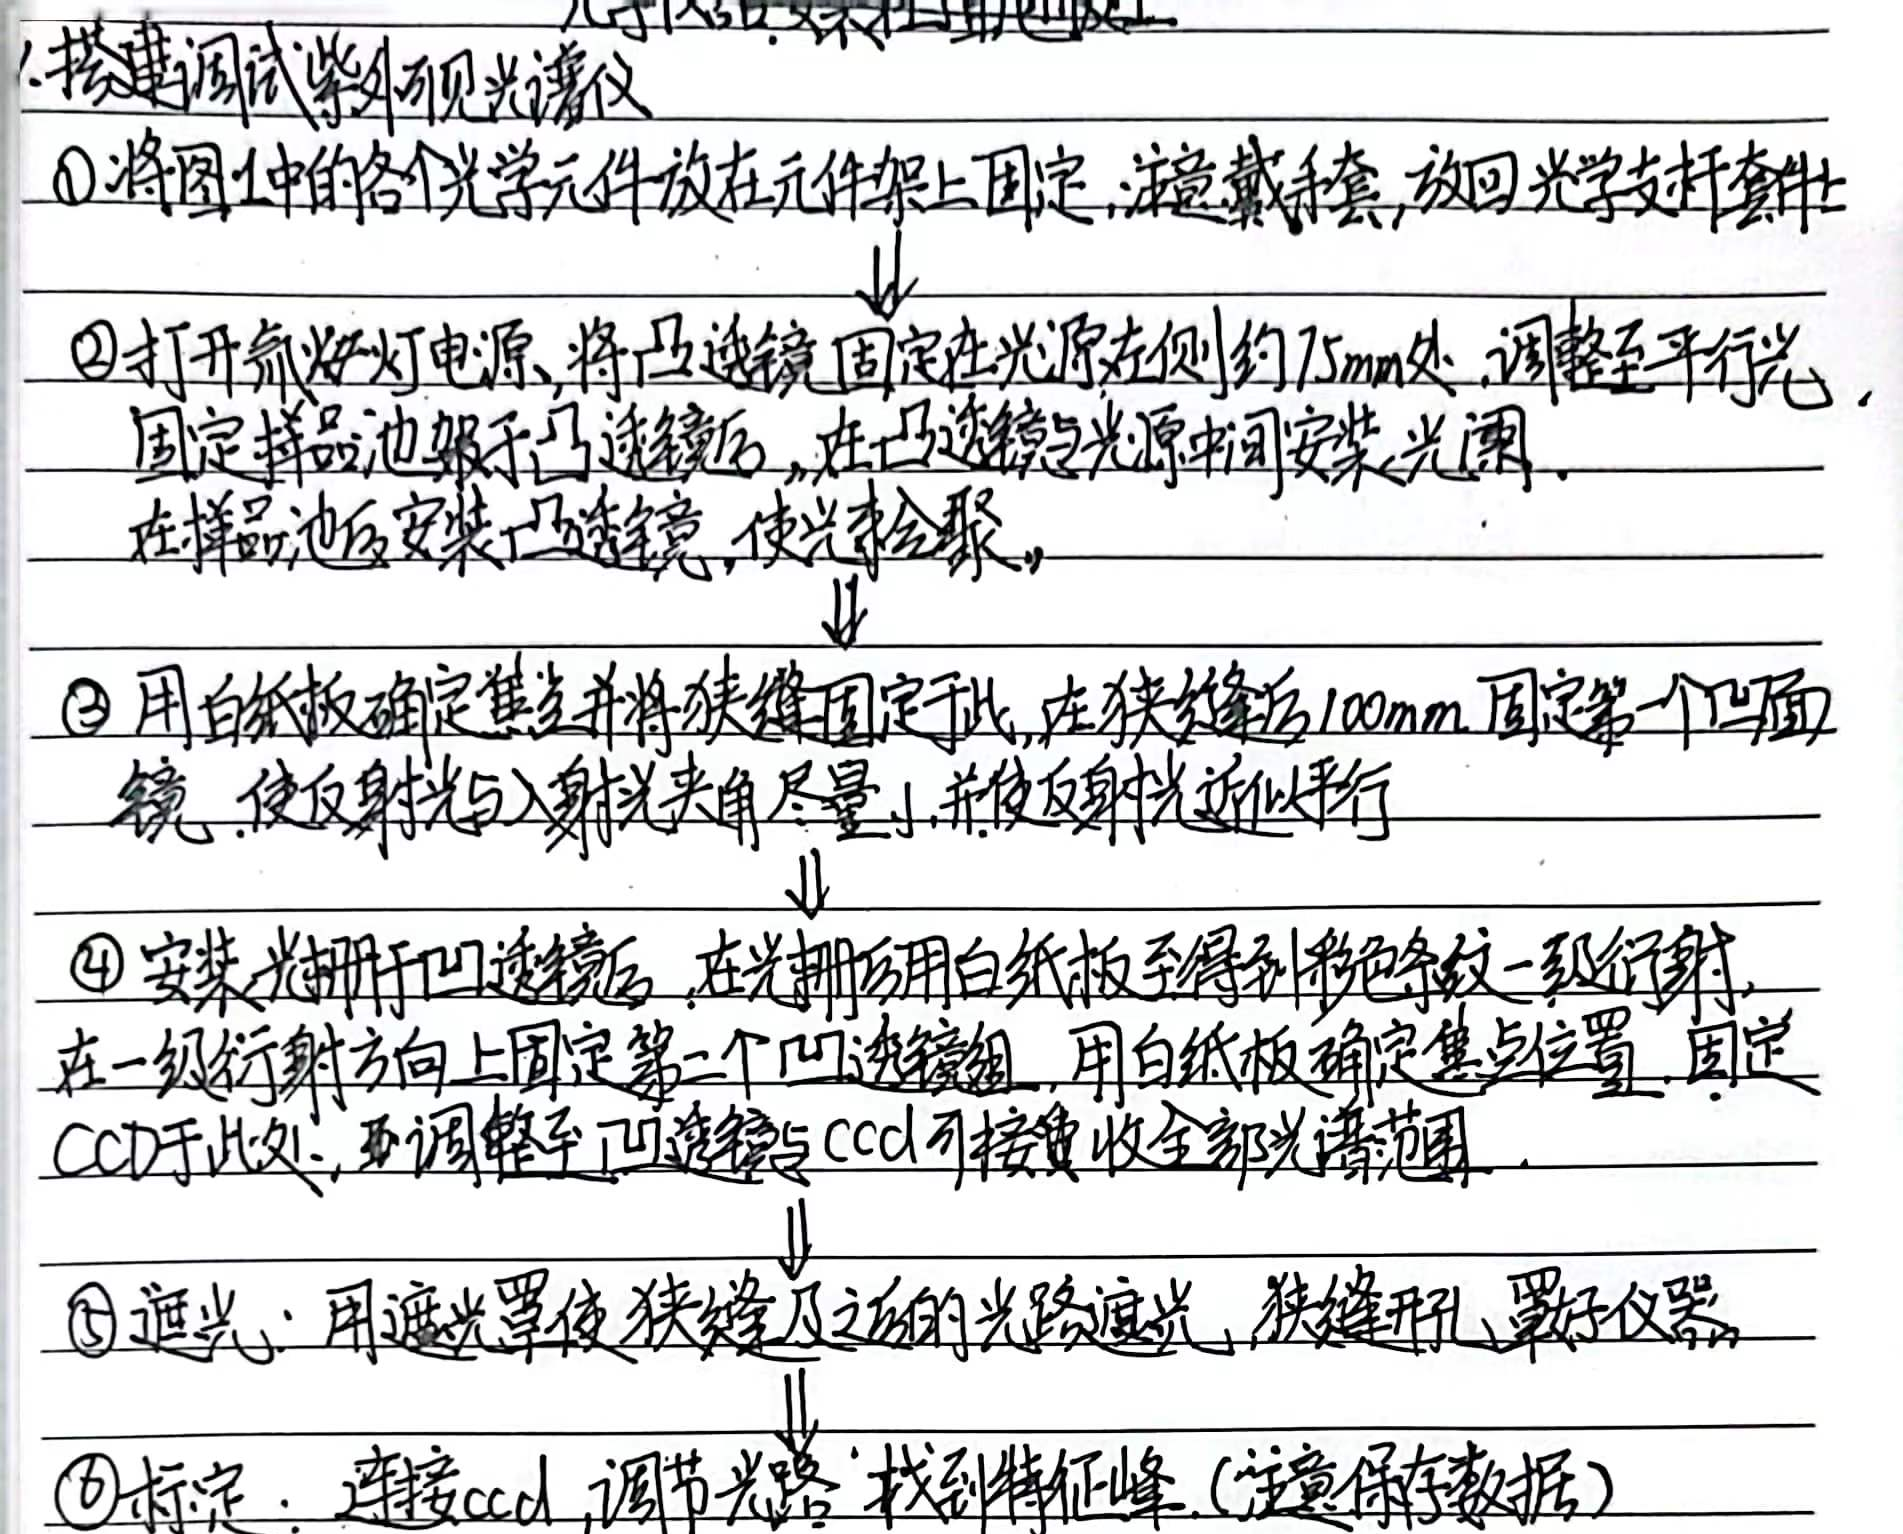 1.搭建调试紫外可见光谱仪
①将图1中的各个光学元件放在元件架上固定,注意戴手套,放回光学支杆套件上
⇓
②打开氘灯电源,将凸透镜固定在光源左侧约75mm处,调整至平行光,
固定样品池架于凸透镜后,在凸透镜与光源中间安装光阑.
在样品池后安装凸透镜,使光束会聚。
⇓
③用白纸板确定焦点并将狭缝固定于此,在狭缝后100mm固定第一个凹面
镜,使反射光与入射光夹角尽量小,并使反射光近似平行
⇓
④安装光栅于凹透镜后,在光栅后用白纸板至得到彩色条纹一级衍射,
在一级衍射方向上固定第二个凹透镜组,用白纸板确定焦点位置.固定
CCD于此处,调整至凹透镜与ccd可接收全部光谱范围.
⇓
⑤遮光:用遮光罩使狭缝及之后的光路遮光,狭缝开孔,罩好仪器
⇓
⑥标定:连接ccd,调节光路 找到特征峰.(注意保存数据)